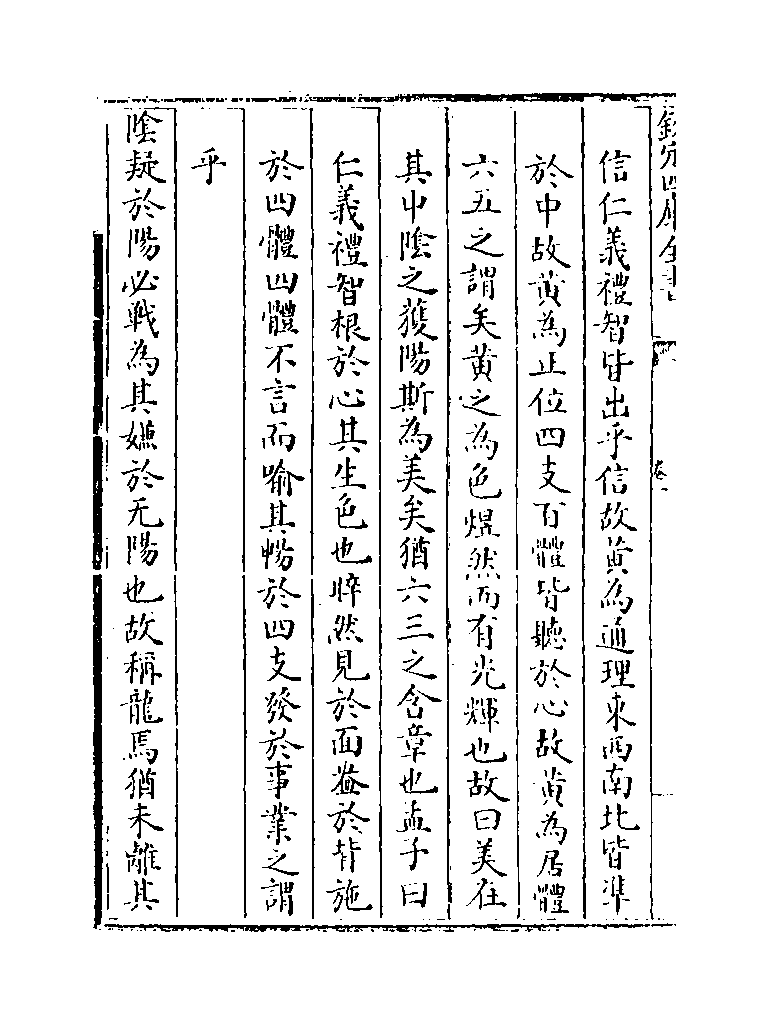 欽定四庫全書
卷一
信仁義禮智皆出乎信故黄為通理東西南北皆準
於中故黄為正位四支百體皆聽於心故黄為居體
六五之謂矣黄之為色煜然而有光輝也故曰美在
其中陰之獲陽斯為美矣猶六三之含章也孟子曰
仁義禮智根於心其生色也睟然見於面盎於背施
於四體四體不言而喻其暢於四支發於事業之謂
乎
陰疑於陽必戰為其嫌於无陽也故稱龍焉猶未離其